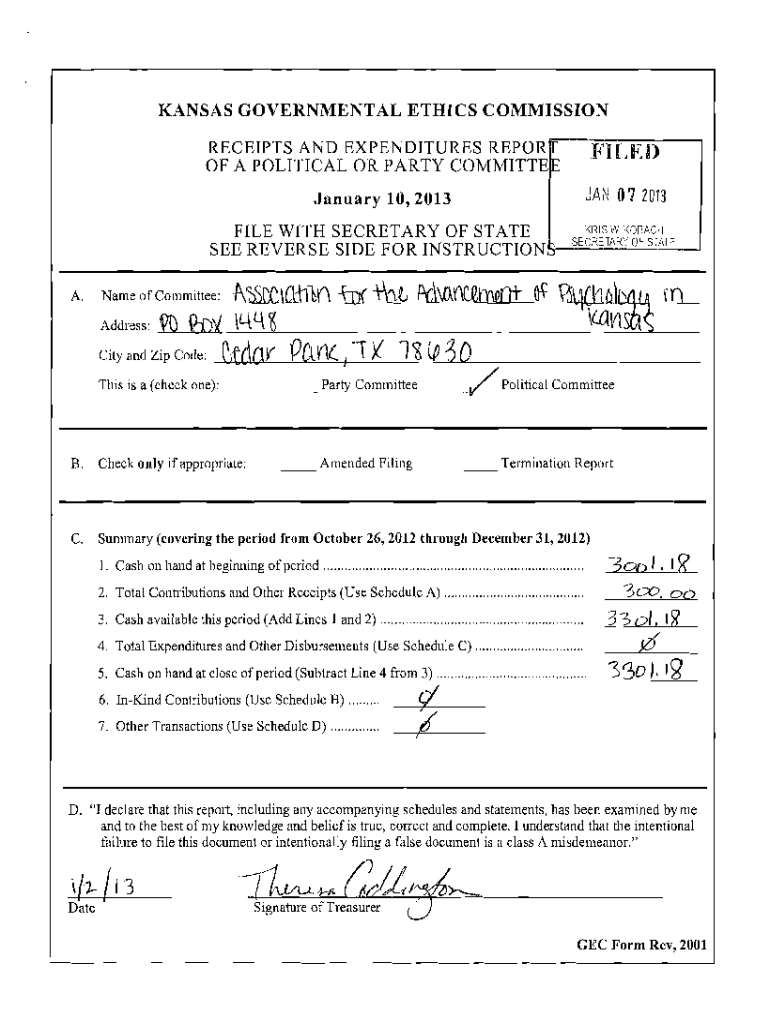 KANSAS GOVERNMENTAL ETHICS COMMISSION
RECEIPTS AND EXPENDITURES REPORT
OF A POLITICAL OR PARTY COMMITTEE
FILED
January 10, 2013
JAN 07 2013
FILE WITH SECRETARY OF STATE
KRIS W KOBACH
SEE REVERSE SIDE FOR INSTRUCTIONS
SECRETARY OF STATE
A. Name of Committee: Association for the Advancement of Psychology in
Kansas
Address: PO Box 1448
City and Zip Code: Cedar Park, TX 78630
This is a (check one): _ Party Committee ✓ Political Committee
B. Check only if appropriate: ____ Amended Filing ____ Termination Report
C. Summary (covering the period from October 26, 2012 through December 31, 2012)
1. Cash on hand at beginning of period ........ 3001.18
2. Total Contributions and Other Receipts (Use Schedule A) ........ 300.00
3. Cash available this period (Add Lines 1 and 2) ........ 3301.18
4. Total Expenditures and Other Disbursements (Use Schedule C) ........ Ø
5. Cash on hand at close of period (Subtract Line 4 from 3) ........ 3301.18
6. In-Kind Contributions (Use Schedule B) ......... Ø
7. Other Transactions (Use Schedule D) .............. Ø
D. "I declare that this report, including any accompanying schedules and statements, has been examined by me
and to the best of my knowledge and belief is true, correct and complete. I understand that the intentional
failure to file this document or intentionally filing a false document is a class A misdemeanor."
1/2/13 Theresa Coddington
Date Signature of Treasurer
GEC Form Rev, 2001